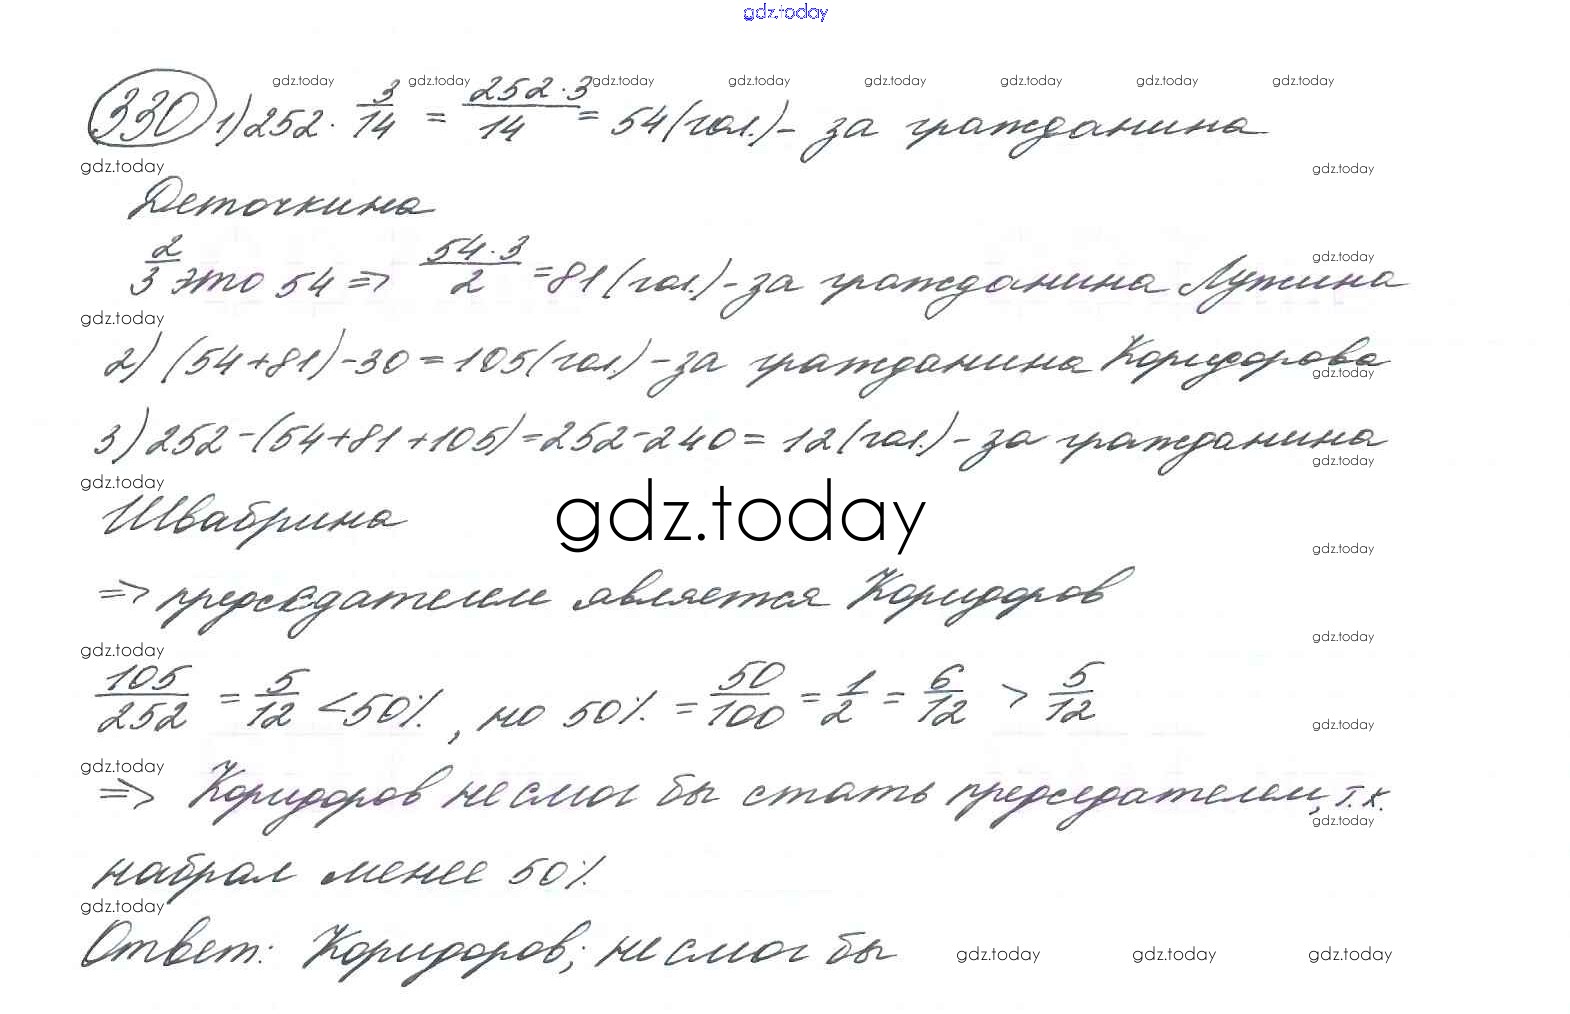 gdz.today
gdz.today gdz.today gdz.today gdz.today gdz.today gdz.today gdz.today gdz.today
330 1) 252 · 3/14 = 252·3/14 = 54 (гол.) - за гражданина
gdz.today gdz.today
Деточкина
gdz.today
2/3 это 54 => 54·3/2 = 81 (гол.) - за гражданина Лужина
gdz.today
2) (54+81)-30 = 105 (гол.) - за гражданина Коридорова
gdz.today
3) 252-(54+81+105) = 252-240 = 12 (гол.) - за гражданина
gdz.today
gdz.today
Швабрина
gdz.today
gdz.today
=> председателем является Коридоров
gdz.today gdz.today
105/252 = 5/12 < 50%, но 50% = 50/100 = 1/2 = 6/12 > 5/12
gdz.today
gdz.today
=> Коридоров не смог бы стать председателем, т.к.
gdz.today
набрал менее 50%
gdz.today
Ответ: Коридоров; не смог бы
gdz.today gdz.today gdz.today